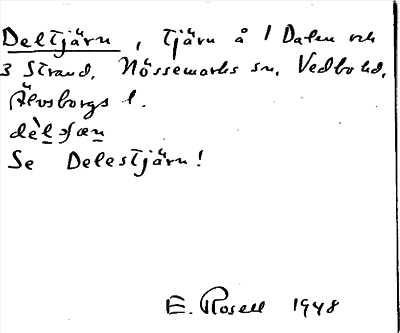 Deltjärn, tjärn å 1 Dalen och
3 Strand, Nössemarks sn, Vedbo hd,
Älvsborgs l.
Se Delestjärn!
E. Rosell 1948